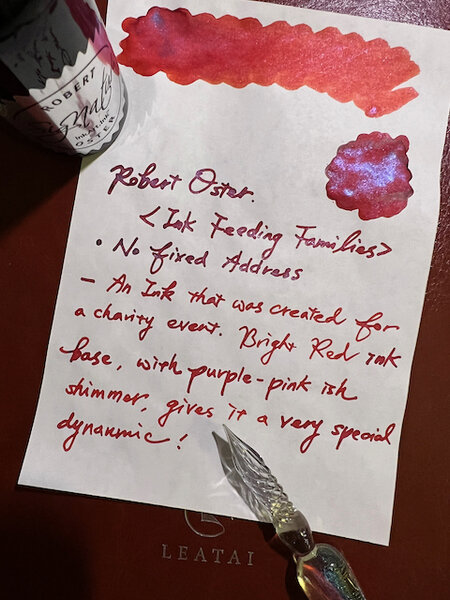 ROBERT
Signature
Ink A Link
OSTER
Robert Oster.
<Ink Feeding Families>
• No fixed Address
– An Ink that was created for
a charity event. Bright Red ink
base, with purple-pink ish
shimmer, gives it a very special
dynanmic!
LEATAI